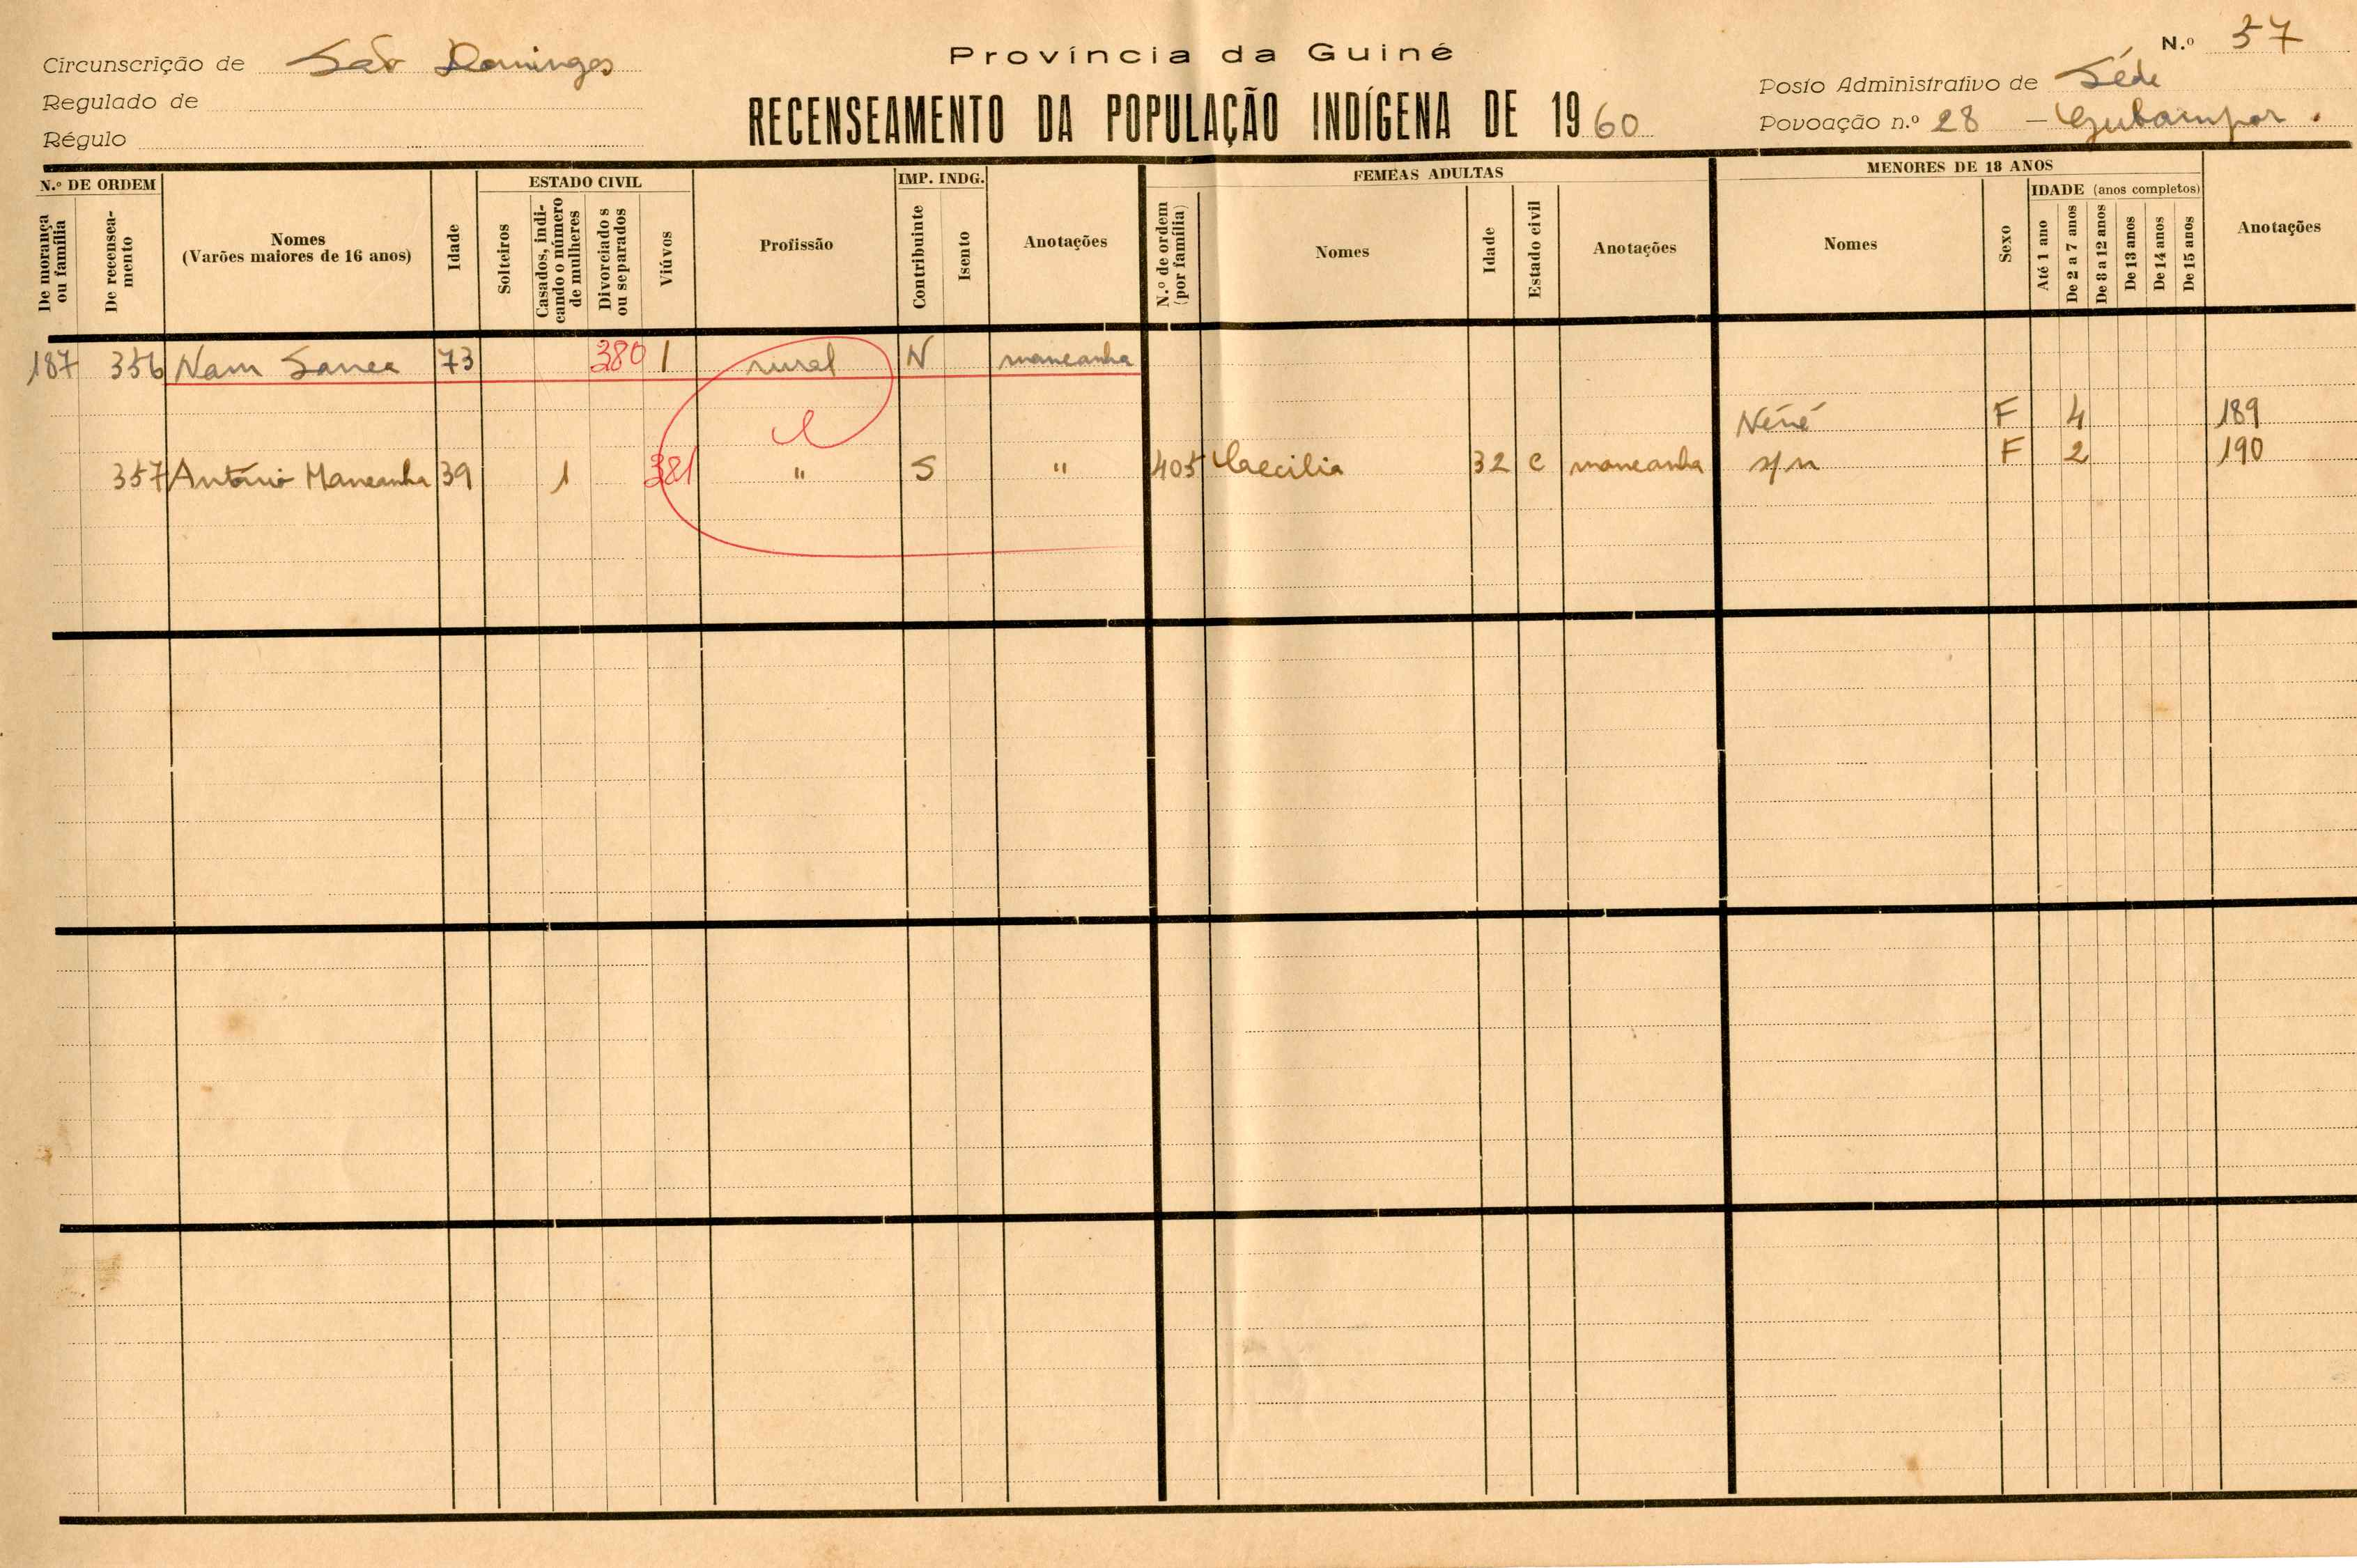 Província da Guiné
N.º 37
Circunscrição de São Domingos
Posto Administrativo de Séde
Regulado de
RECENSEAMENTO DA POPULAÇÃO INDÍGENA DE 1960
Povoação n.º 28 - Gubampor.
Régulo
N.º DE ORDEM
De morança ou família
De recensea-mento
Nomes
(Varões maiores de 16 anos)
Idade
ESTADO CIVIL
Solteiros
Casados, indi-cando o número de mulheres
Divorciados ou separados
Viúvos
Profissão
IMP. INDG.
Contribuinte
Isento
Anotações
FEMEAS ADULTAS
N.º de ordem (por família)
Nomes
Idade
Estado civil
Anotações
MENORES DE 18 ANOS
Nomes
Sexo
IDADE (anos completos)
Até 1 ano
De 2 a 7 anos
De 8 a 12 anos
De 13 anos
De 14 anos
De 15 anos
Anotações
187 356 Nam Sanca 73 380 1 rural N mancanha
Néné F 4 189
357 António Mancanha 39 1 381 " S " 405 Caecilia 32 C mancanha s/n F 2 190